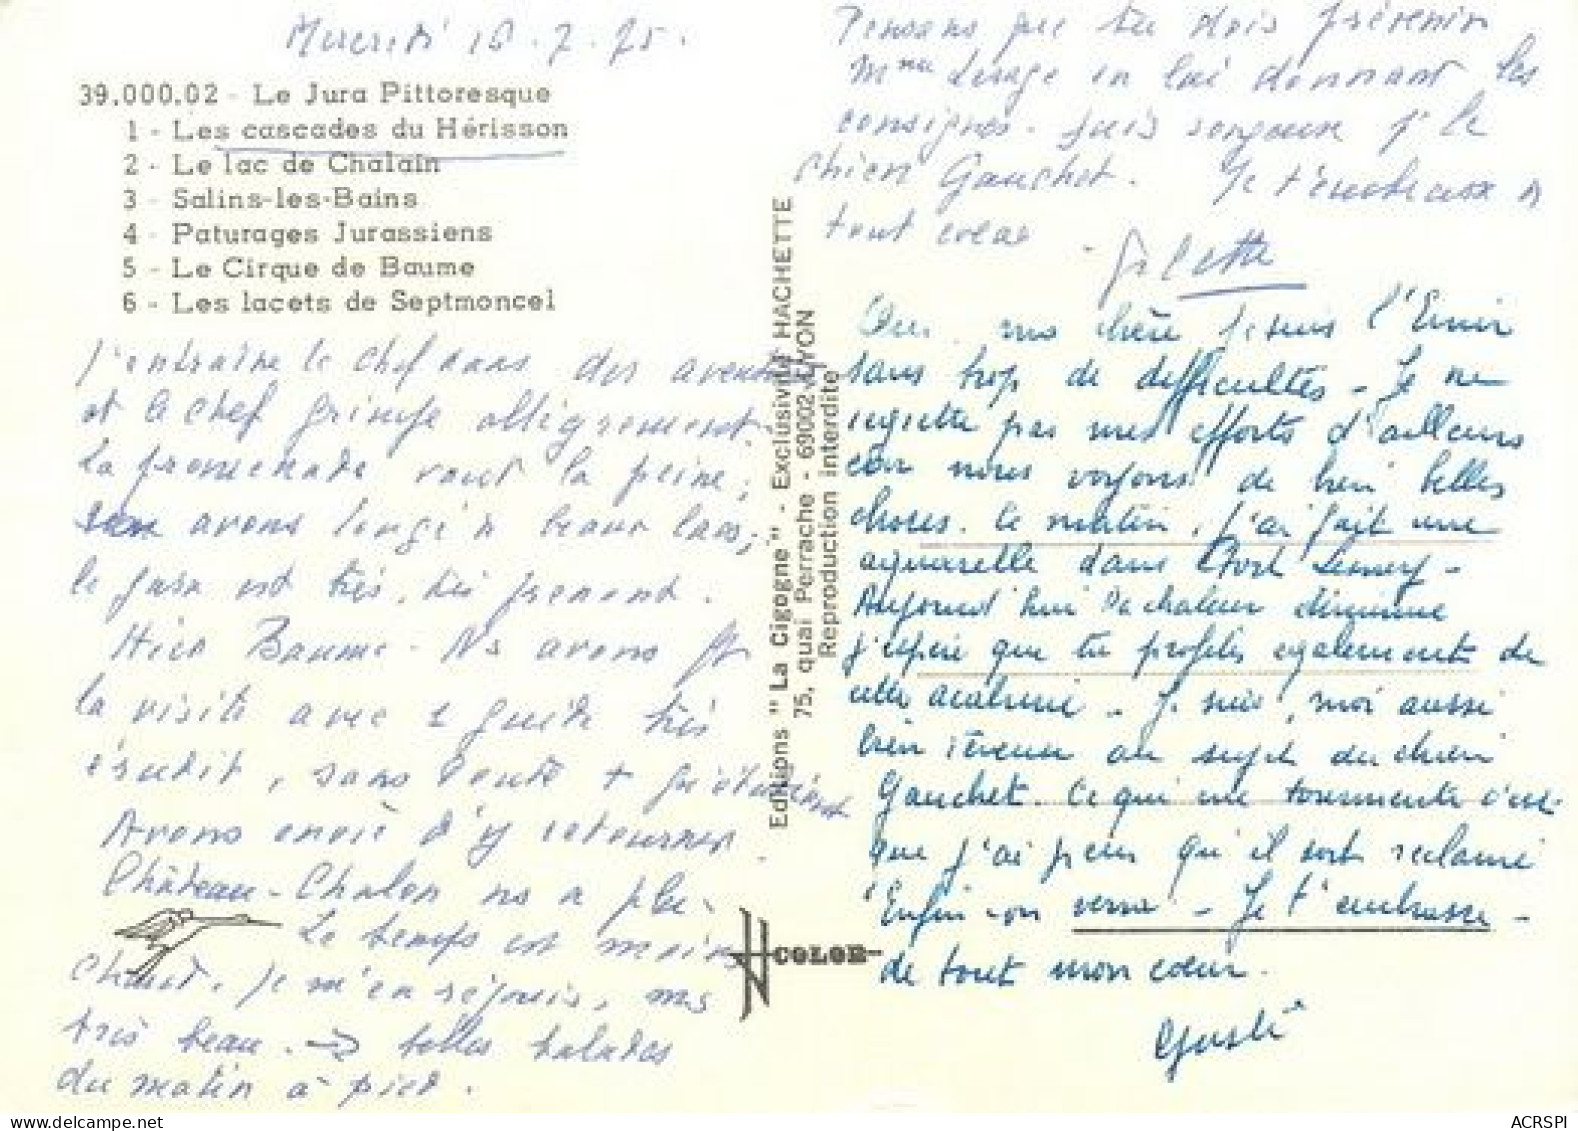 Mercredi 16.7.75.
39.000.02 - Le Jura Pittoresque
1 - Les cascades du Hérisson
2 - Le lac de Chalain
3 - Salins-les-Bains
4 - Paturages Jurassiens
5 - Le Cirque de Baume
6 - Les lacets de Septmoncel
J'entraîne le chef dans des aventures
et le chef grimpe allègrement.
La promenade vaut la peine,
avons longé beaux lacs,
le Jura est très, très prenant.
Hier Baume. Ns avons ft
la visite avec 1 guide très
érudit, sans doute +
Avons envie d'y retourner.
Château-Chalon ns a plu.
Le temps est moins
chaud. Je m'en réjouis, mais
très beau. → belles balades
du matin à pied.
Editions "La Cigogne" - Exclusivité HACHETTE
75, quai Perrache - 69002 LYON
Reproduction interdite
COLOR
Pensons que tu dois prévenir
Mme Lesage en lui donnant les
consignes. Suis songeuse pr le
chien Gauchet. Je t'embrasse de
tout cœur
Gilette
Oui ma chère je suis l'Emir
sans trop de difficultés - Je ne
regrette pas mes efforts d'ailleurs
car nous voyons de bien belles
choses. Ce matin, j'ai fait une
aquarelle dans
Aujourd'hui la chaleur diminue
j'espère que tu profites également de
cette accalmie - Je suis, moi aussi
bien au sujet du chien
Gauchet. Ce qui me tourmente c'est
que j'ai peur qu'il soit réclamé
Enfin on verra - Je t'embrasse -
de tout mon cœur.
ACRSPI